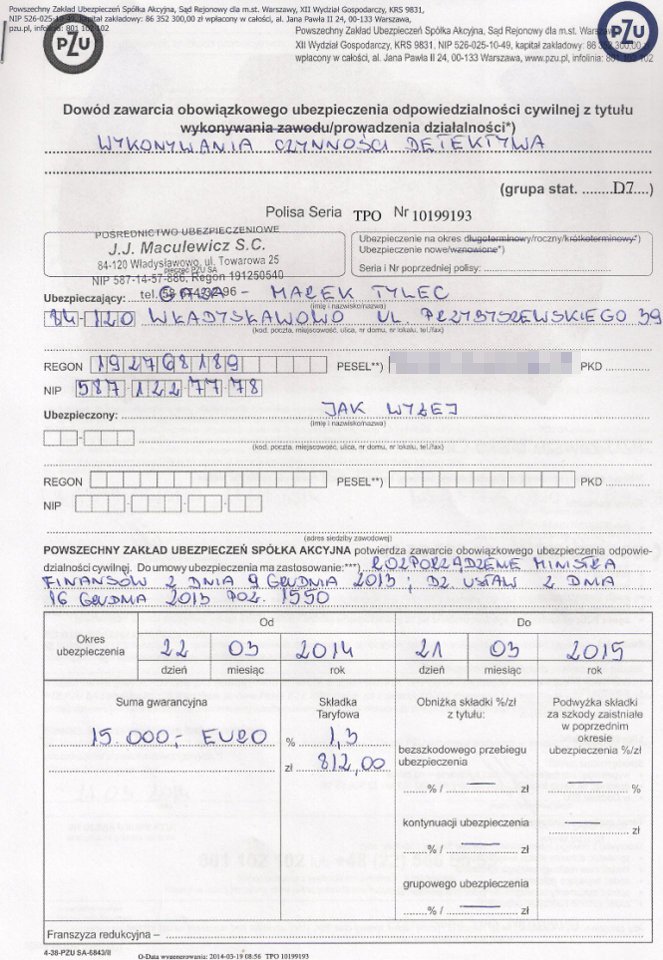 Powszechny Zakład Ubezpieczeń Spółka Akcyjna, Sąd Rejonowy dla m.st. Warszawy, XII Wydział Gospodarczy, KRS 9831,
NIP 526-025-10-49, kapitał zakładowy: 86 352 300,00 zł wpłacony w całości, al. Jana Pawła II 24, 00-133 Warszawa,
pzu.pl, infolinia: 801 102 102
PZU
PZU
Powszechny Zakład Ubezpieczeń Spółka Akcyjna, Sąd Rejonowy dla m.st. Warszawy
XII Wydział Gospodarczy, KRS 9831, NIP 526-025-10-49, kapitał zakładowy: 86 352 300,00 zł
wpłacony w całości, al. Jana Pawła II 24, 00-133 Warszawa, www.pzu.pl, infolinia: 801 102 102
Dowód zawarcia obowiązkowego ubezpieczenia odpowiedzialności cywilnej z tytułu
wykonywania zawodu/prowadzenia działalności*)
WYKONYWANIA CZYNNOŚCI DETEKTYWA
(grupa stat. ........D7....)
Polisa Seria TPO Nr 10199193
POŚREDNICTWO UBEZPIECZENIOWE
J.J. Maculewicz S.C.
84-120 Władysławowo, ul. Towarowa 25
pieczęć PZU SA
NIP 587-14-57-886, Regon 191250540
Ubezpieczenie na okres długoterminowy/roczny/krótkoterminowy*)
Ubezpieczenie nowe/wznowione*)
Seria i Nr poprzedniej polisy:
Ubezpieczający: GAJA – MAREK TYLEC
(imię i nazwisko/nazwa)
84-120 WŁADYSŁAWOWO UL. PRZYBYSZEWSKIEGO 39
(kod. poczta, miejscowość, ulica, nr domu, nr lokalu, tel./fax)
REGON 192768189 PESEL**) PKD
NIP 587-122-77-78
Ubezpieczony: JAK WYŻEJ
(imię i nazwisko/nazwa)
(kod. poczta, miejscowość, ulica, nr domu, nr lokalu, tel./fax)
REGON PESEL**) PKD
NIP
(adres siedziby zawodowej)
POWSZECHNY ZAKŁAD UBEZPIECZEŃ SPÓŁKA AKCYJNA potwierdza zawarcie obowiązkowego ubezpieczenia odpowie-
dzialności cywilnej. Do umowy ubezpieczenia ma zastosowanie:***) ROZPORZĄDZENIE MINISTRA
FINANSÓW Z DNIA 9 GRUDNIA 2013; DZ. USTAW Z DNIA
16 GRUDNIA 2013 POZ. 1550
Okres ubezpieczenia
Od
Do
22 03 2014 21 03 2015
dzień miesiąc rok dzień miesiąc rok
Suma gwarancyjna
15.000,- EURO
Składka
Taryfowa
% 1,3
zł 812,00
Obniżka składki %/zł
z tytułu:
bezszkodowego przebiegu
ubezpieczenia
% / — zł
kontynuacji ubezpieczenia
% / — zł
grupowego ubezpieczenia
% / — zł
Podwyżka składki
za szkody zaistniałe
w poprzednim
okresie
ubezpieczenia %/zł
— %
— zł
Franszyza redukcyjna –
4-38-PZU SA-6843/II
O-Data wygenerowania: 2014-03-19 08:56 TPO 10199193